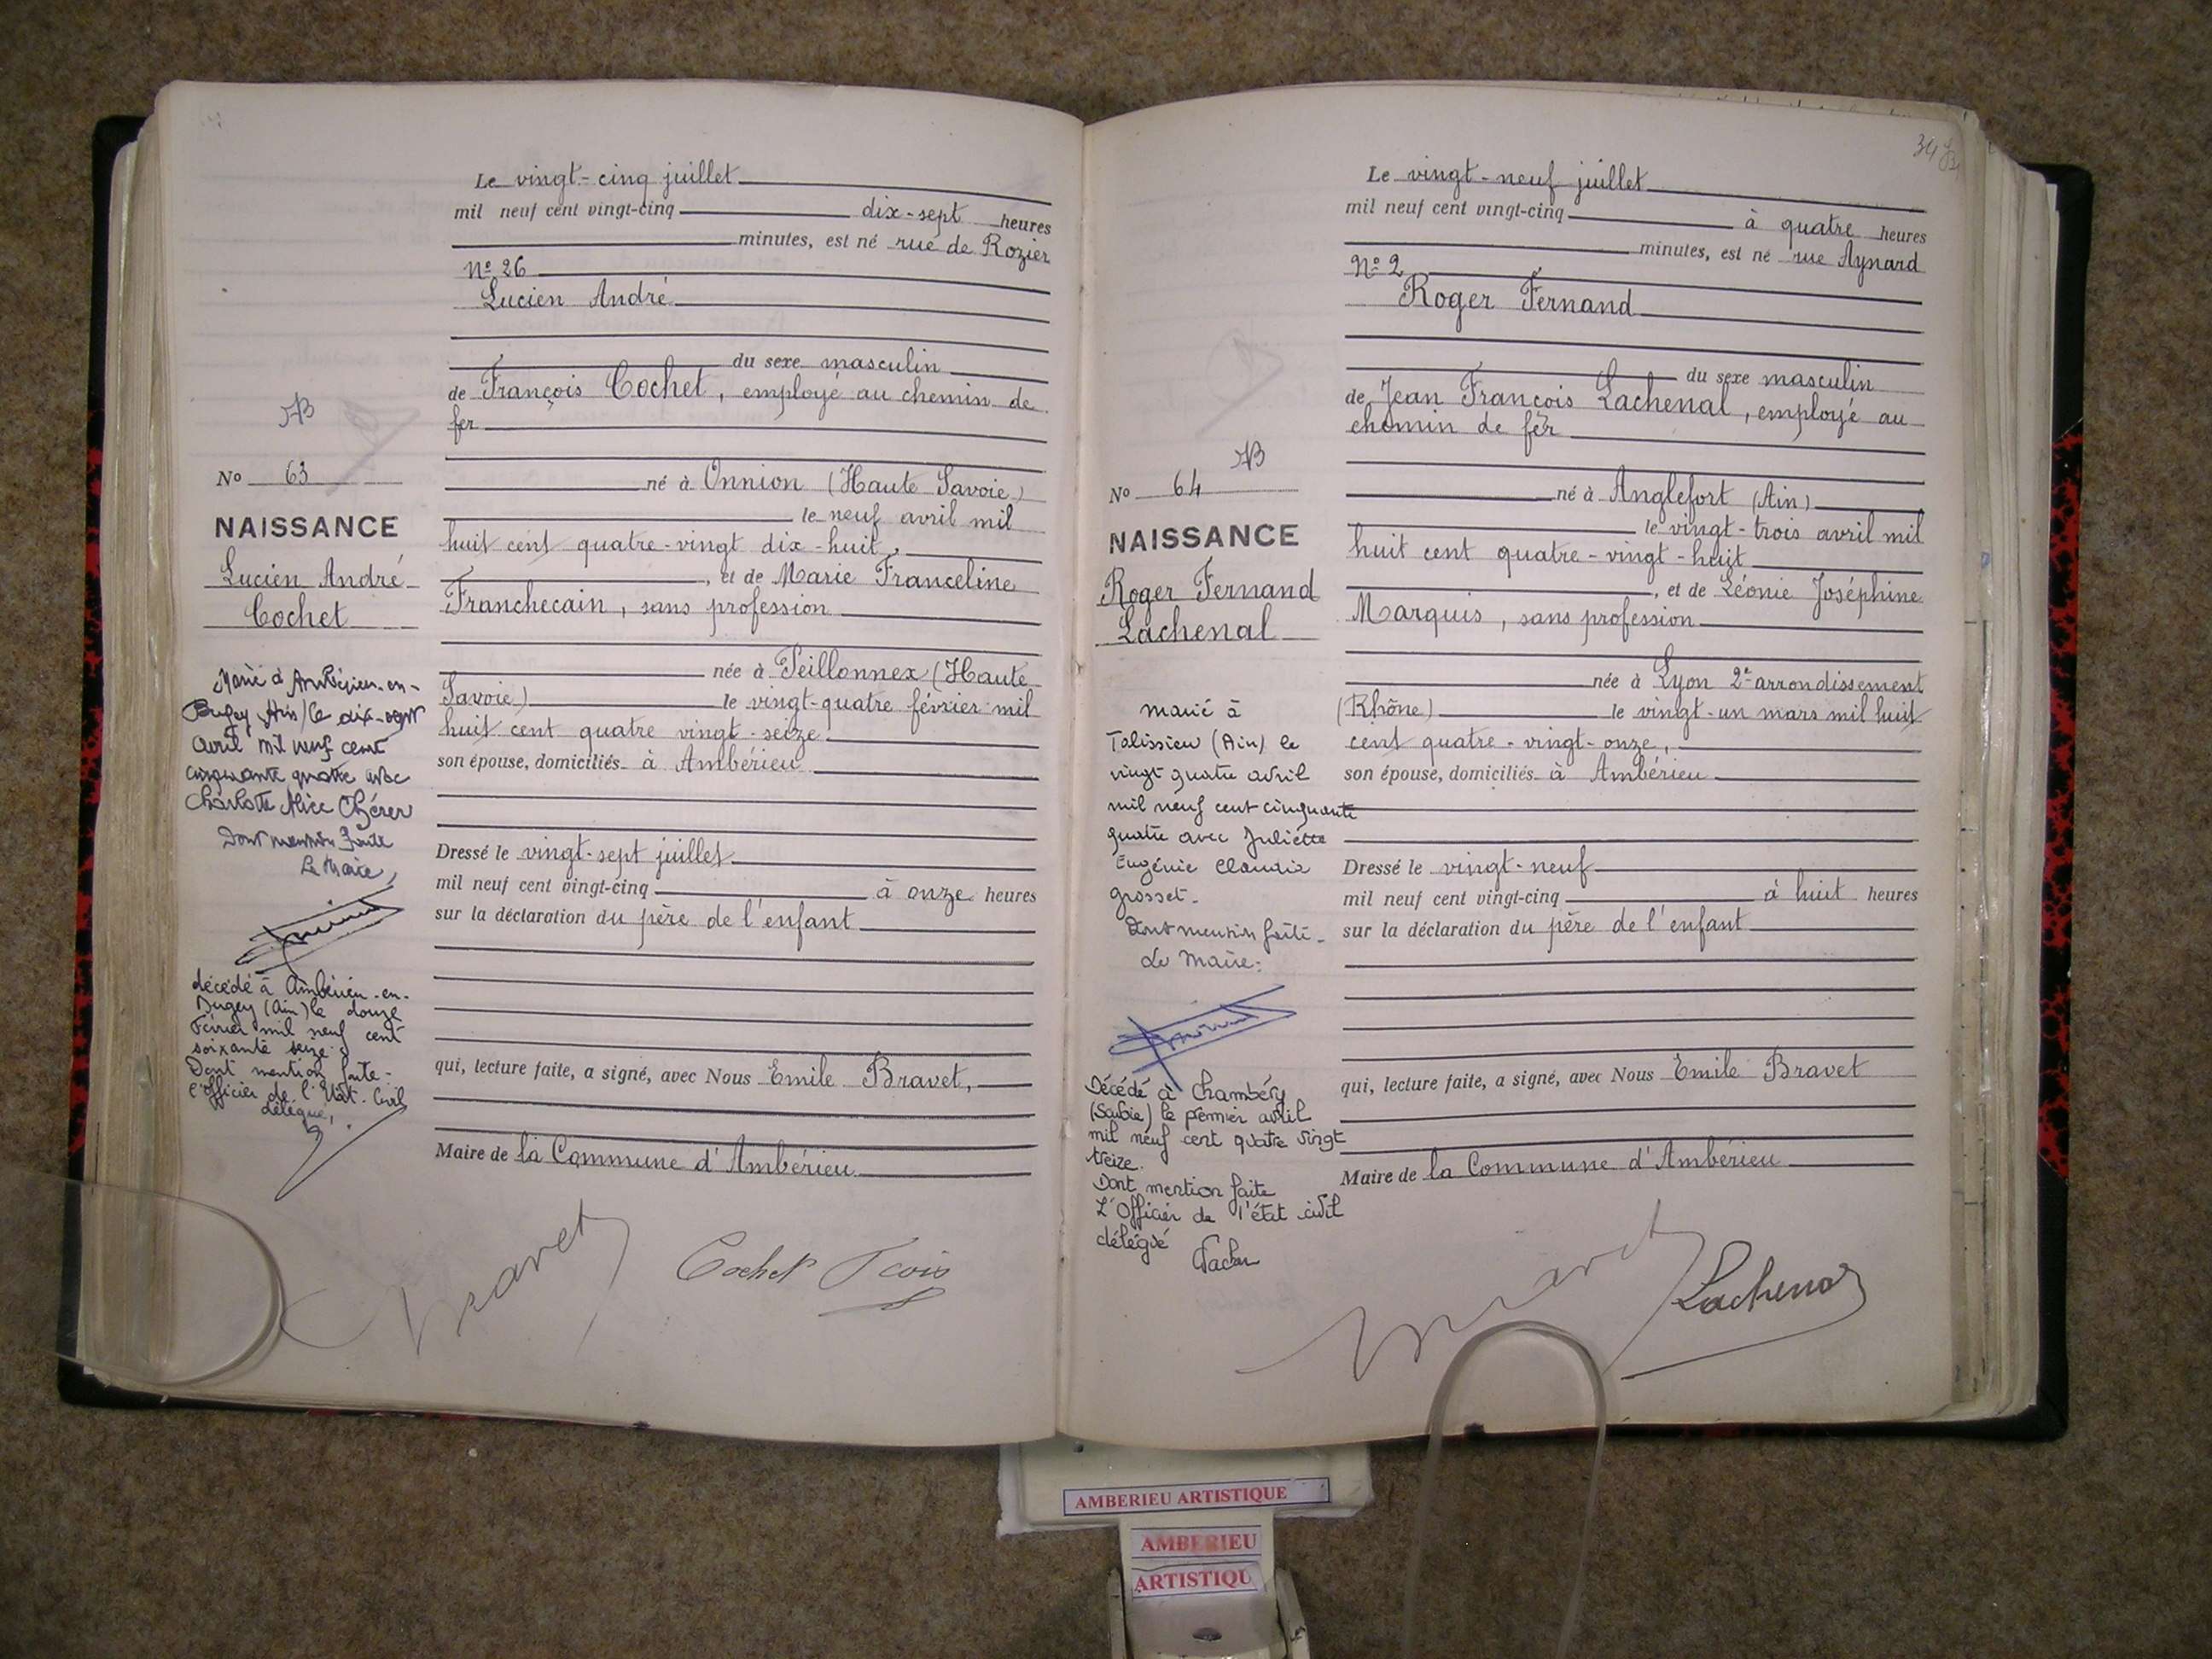 Le vingt-cinq juillet
mil neuf cent vingt-cinq dix-sept heures
minutes, est né rue de Rozier
No 26
Lucien André
du sexe masculin
de François Cochet, employé au chemin de
fer
né à Onnion (Haute Savoie)
le neuf avril mil
huit cent quatre-vingt dix-huit,
, et de Marie Franceline
Franchecain, sans profession
née à Peillonnex (Haute
Savoie) le vingt-quatre février mil
huit cent quatre vingt-seize
son épouse, domiciliés à Ambérieu
Dressé le vingt-sept juillet
mil neuf cent vingt-cinq à onze heures
sur la déclaration du père de l'enfant
qui, lecture faite, a signé, avec Nous Emile Bravet,
Maire de la Commune d'Ambérieu
Bravet
Cochet Fcois
No 63
NAISSANCE
Lucien André
Cochet
Marié à Ambérieu-en-
Bugey (Ain) le dix-sept
avril mil neuf cent
cinquante quatre avec
Charlotte Alice Chérer
Dont mention faite
Le Maire,
décédé à Ambérieu-en-
Bugey (Ain) le douze
Février mil neuf cent
soixante seize
Dont mention faite-
l'Officier de l'Etat-Civil
délégué,
34
Le vingt-neuf juillet
mil neuf cent vingt-cinq à quatre heures
minutes, est né rue Aynard
No 2
Roger Fernand
du sexe masculin
de Jean François Lachenal, employé au
chemin de fer
né à Anglefort (Ain)
le vingt-trois avril mil
huit cent quatre-vingt-huit
, et de Léonie Joséphine
Marquis, sans profession
née à Lyon 2e arrondissement
(Rhône) le vingt-un mars mil huit
cent quatre-vingt-onze,
son épouse, domiciliés à Ambérieu
Dressé le vingt-neuf
mil neuf cent vingt-cinq à huit heures
sur la déclaration du père de l'enfant
qui, lecture faite, a signé, avec Nous Emile Bravet
Maire de la Commune d'Ambérieu
Bravet
Lachenal
No 64
NAISSANCE
Roger Fernand
Lachenal
marié à
Talissieu (Ain) le
vingt quatre avril
mil neuf cent cinquante
quatre avec Juliette
Eugénie Claudia
Grosset-
Dont mention faite-
Le Maire:
Décédé à Chambéry
(Savoie) le premier avril
mil neuf cent quatre vingt
treize.
Dont mention faite
L'Officier de l'état civil
délégué
AMBERIEU ARTISTIQUE
AMBERIEU
ARTISTIQU